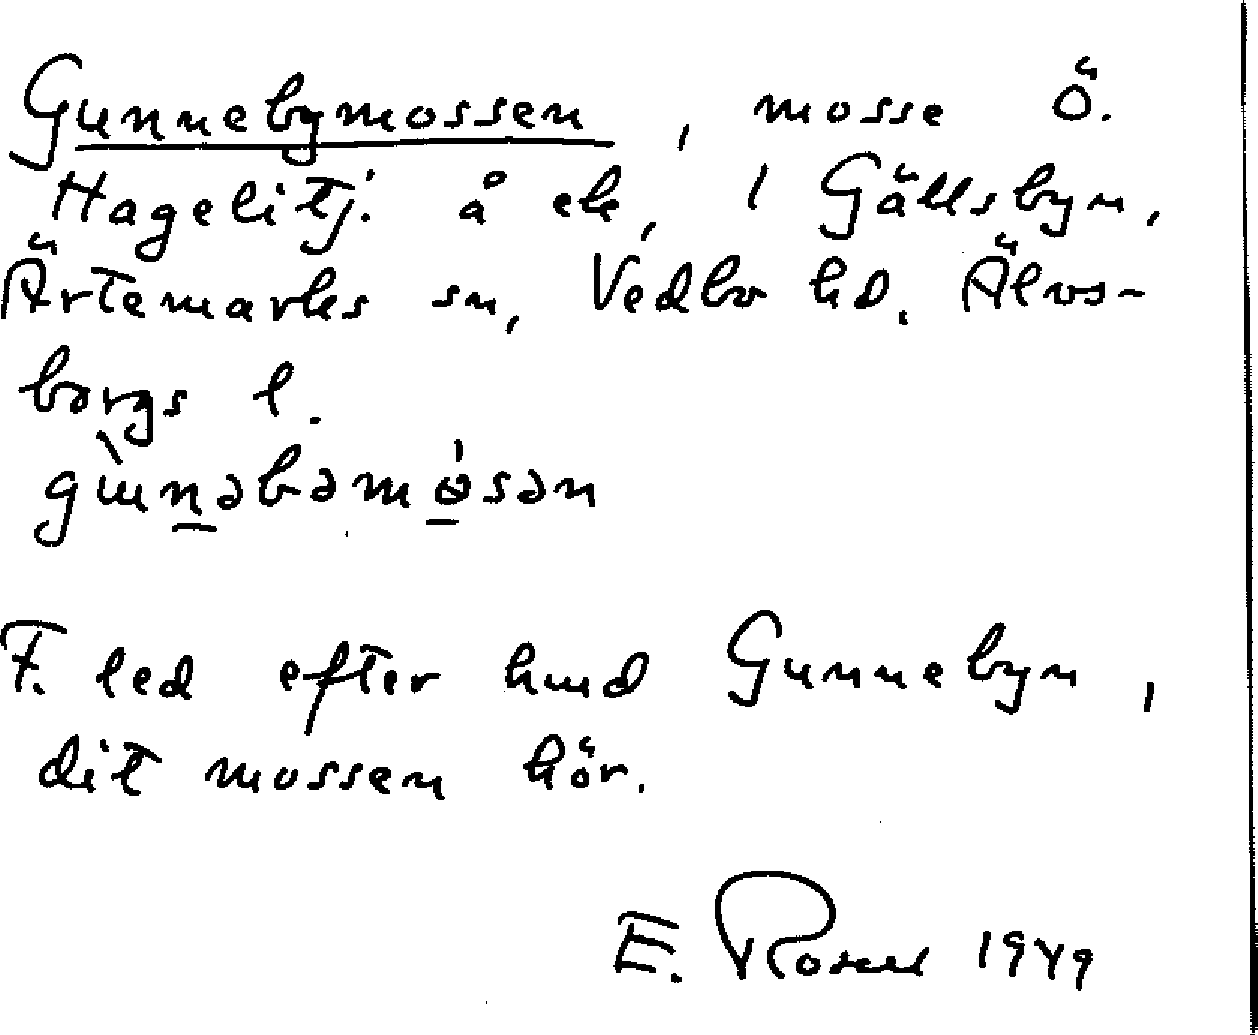 Gunnebymossen, mosse Ö.
Hagelitj. å ek, i Gällsbyn,
Ärtemarks sn, Vedbo hd. Älvs-
borgs l.
gɯ̀nəbəmɵ́sən
F. led efter hmd Gunnebyn,
dit mossen hör.
E. Rosell 1949